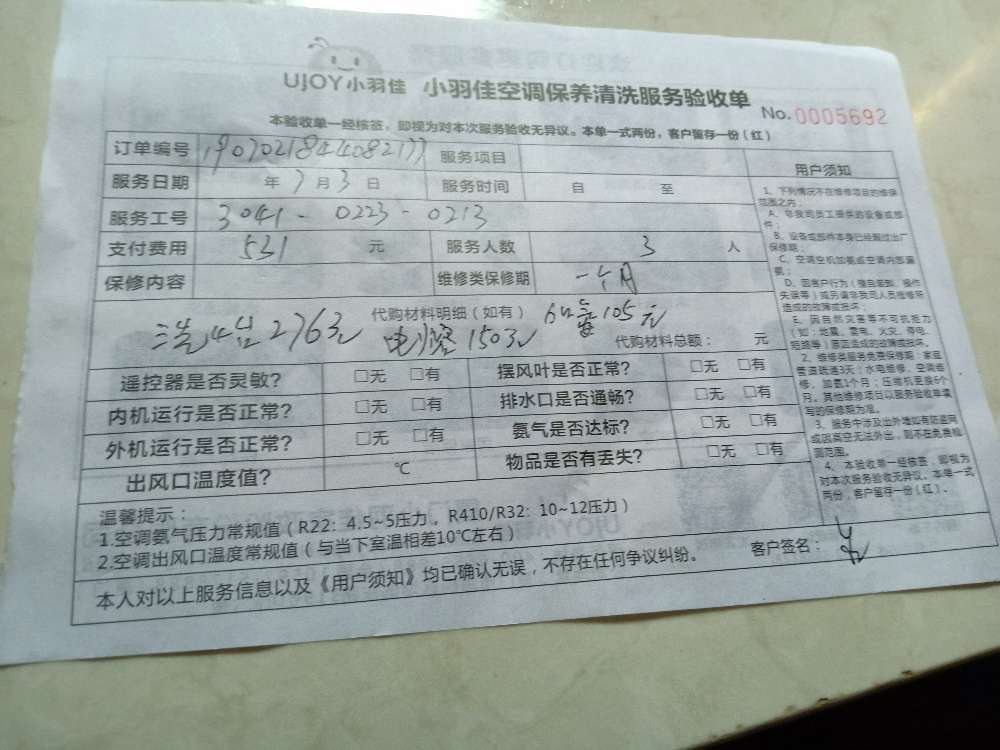 UJOY小羽佳 小羽佳空调保养清洗服务验收单
No.0005692
本验收单一经核签，即视为对本次服务验收无异议。本单一式两份，客户留存一份（红）
订单编号 服务项目
服务日期 年 7 月 3 日 服务时间 自 至
服务工号 3041 - 0223 - 0213
支付费用 531 元 服务人数 3 人
保修内容 维修类保修期 一个月
代购材料明细（如有）
洗4台276元 电熔150元 105元
代购材料总额： 元
遥控器是否灵敏？ □无 □有 摆风叶是否正常？ □无 □有
内机运行是否正常？ □无 □有 排水口是否通畅？ □无 □有
外机运行是否正常？ □无 □有 氨气是否达标？ □无 □有
出风口温度值？ ℃ 物品是否有丢失？ □无 □有
用户须知
1、下列情况不在维修项目的维保
范围之内：
A、非我司员工提供的设备或部
件；
B、设备或部件本身已经超过出厂
保修期；
C、空调空机加氨或空调内部漏
氨；
D、因客户行为（擅自
失误等）或另请非我司人员维修所
造成的故障或损坏；
E、因自然灾害等不可抗拒力
（如：地震、雷电、火灾、停电、
短路等）原因造成的故障或损坏。
2、维修类服务免费保修期：家庭
管道疏通3天；水电维修、空调维
修、加氨1个月；压缩机更换6个
月。其他维修项目以服务验收单填
写的保修期为准。
3、服务中涉及出外墙如有防盗网
或因高空无法外出，则不在免费检
测范围。
4、本验收单一经核签，即视为
对本次服务验收无异议。本单一式
两份，客户留存一份（红）。
温馨提示：
1.空调氨气压力常规值（R22：4.5~5压力 。R410/R32：10~12压力）
2.空调出风口温度常规值（与当下室温相差10℃左右）
本人对以上服务信息以及《用户须知》均已确认无误，不存在任何争议纠纷。 客户签名：